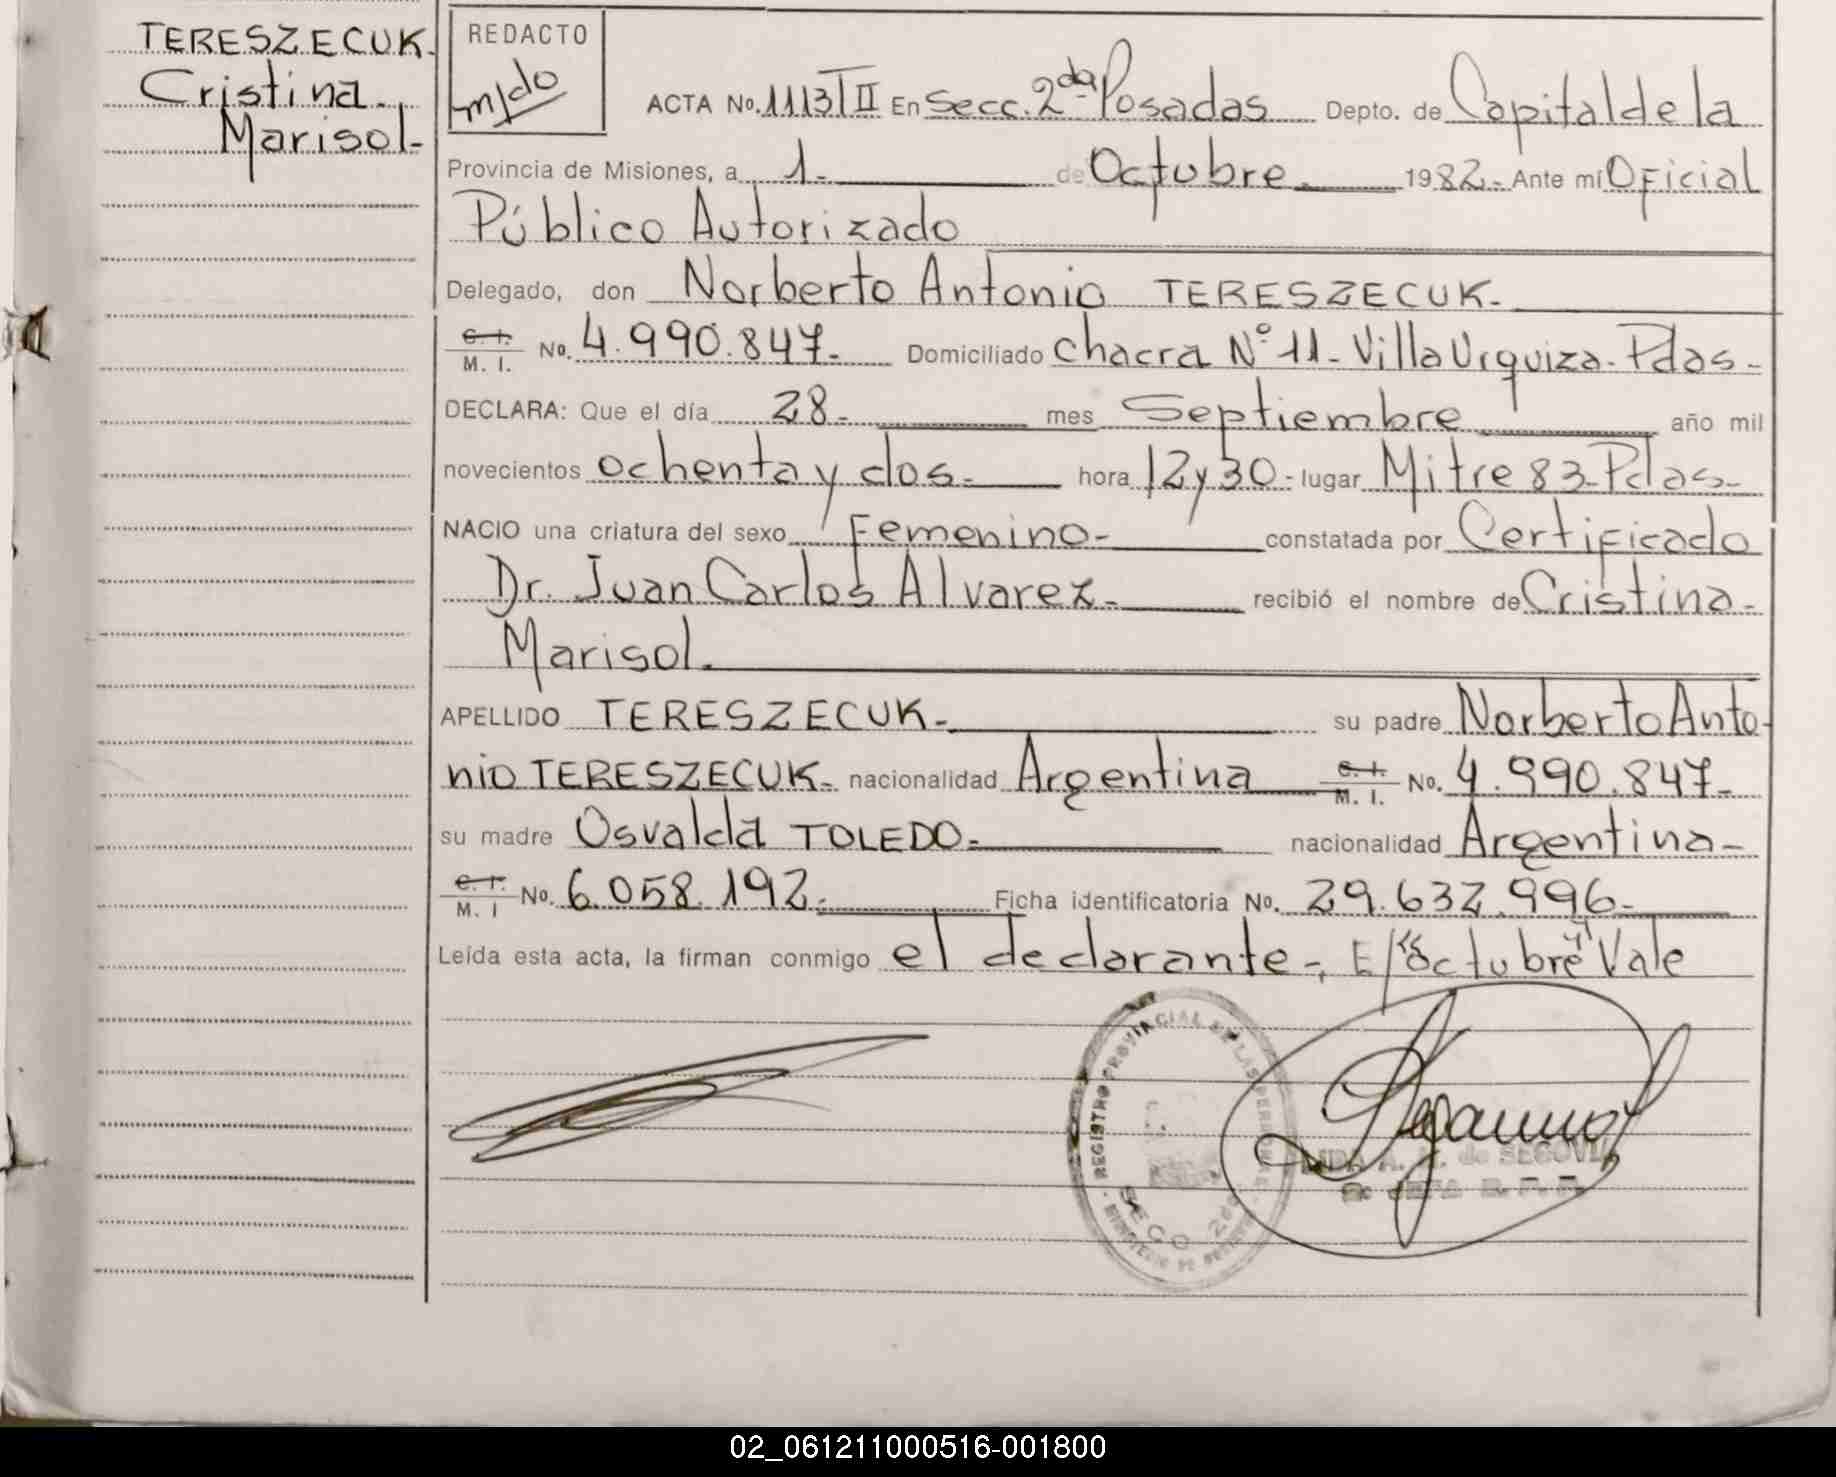 TERESZECUK.
Cristina.
Marisol-
REDACTO
m/do
ACTA No. 1113 T II En Secc. 2da Posadas Depto. de Capital de la
Provincia de Misiones, a 1.- de Octubre. 1982.- Ante mí Oficial
Público Autorizado
Delegado, don Norberto Antonio TERESZECUK.-
C. I.
M. I. No. 4.990.847.- Domiciliado chacra N° 11- Villa Urquiza. Pdas-
DECLARA: Que el día 28.- mes Septiembre año mil
novecientos ochenta y dos.- hora 12 y 30.- lugar Mitre 83-Pdas-
NACIO una criatura del sexo Femenino- constatada por Certificado
Dr. Juan Carlos Alvarez.- recibió el nombre de Cristina-
Marisol.
APELLIDO TERESZECUK.- su padre Norberto Anto-
nio TERESZECUK- nacionalidad Argentina C. I.
M. I. No. 4.990.847-
su madre Osvalda TOLEDO.- nacionalidad Argentina-
C. I.
M. I No. 6.058.192.- Ficha identificatoria No. 29.632.996-
Leída esta acta, la firman conmigo el declarante-, E/"octubre" Vale
REGISTRO PROVINCIAL DE LAS PERSONAS
SECC 2da
A. M. de SEGOVIA
JEFA R. P. P.
02_061211000516-001800